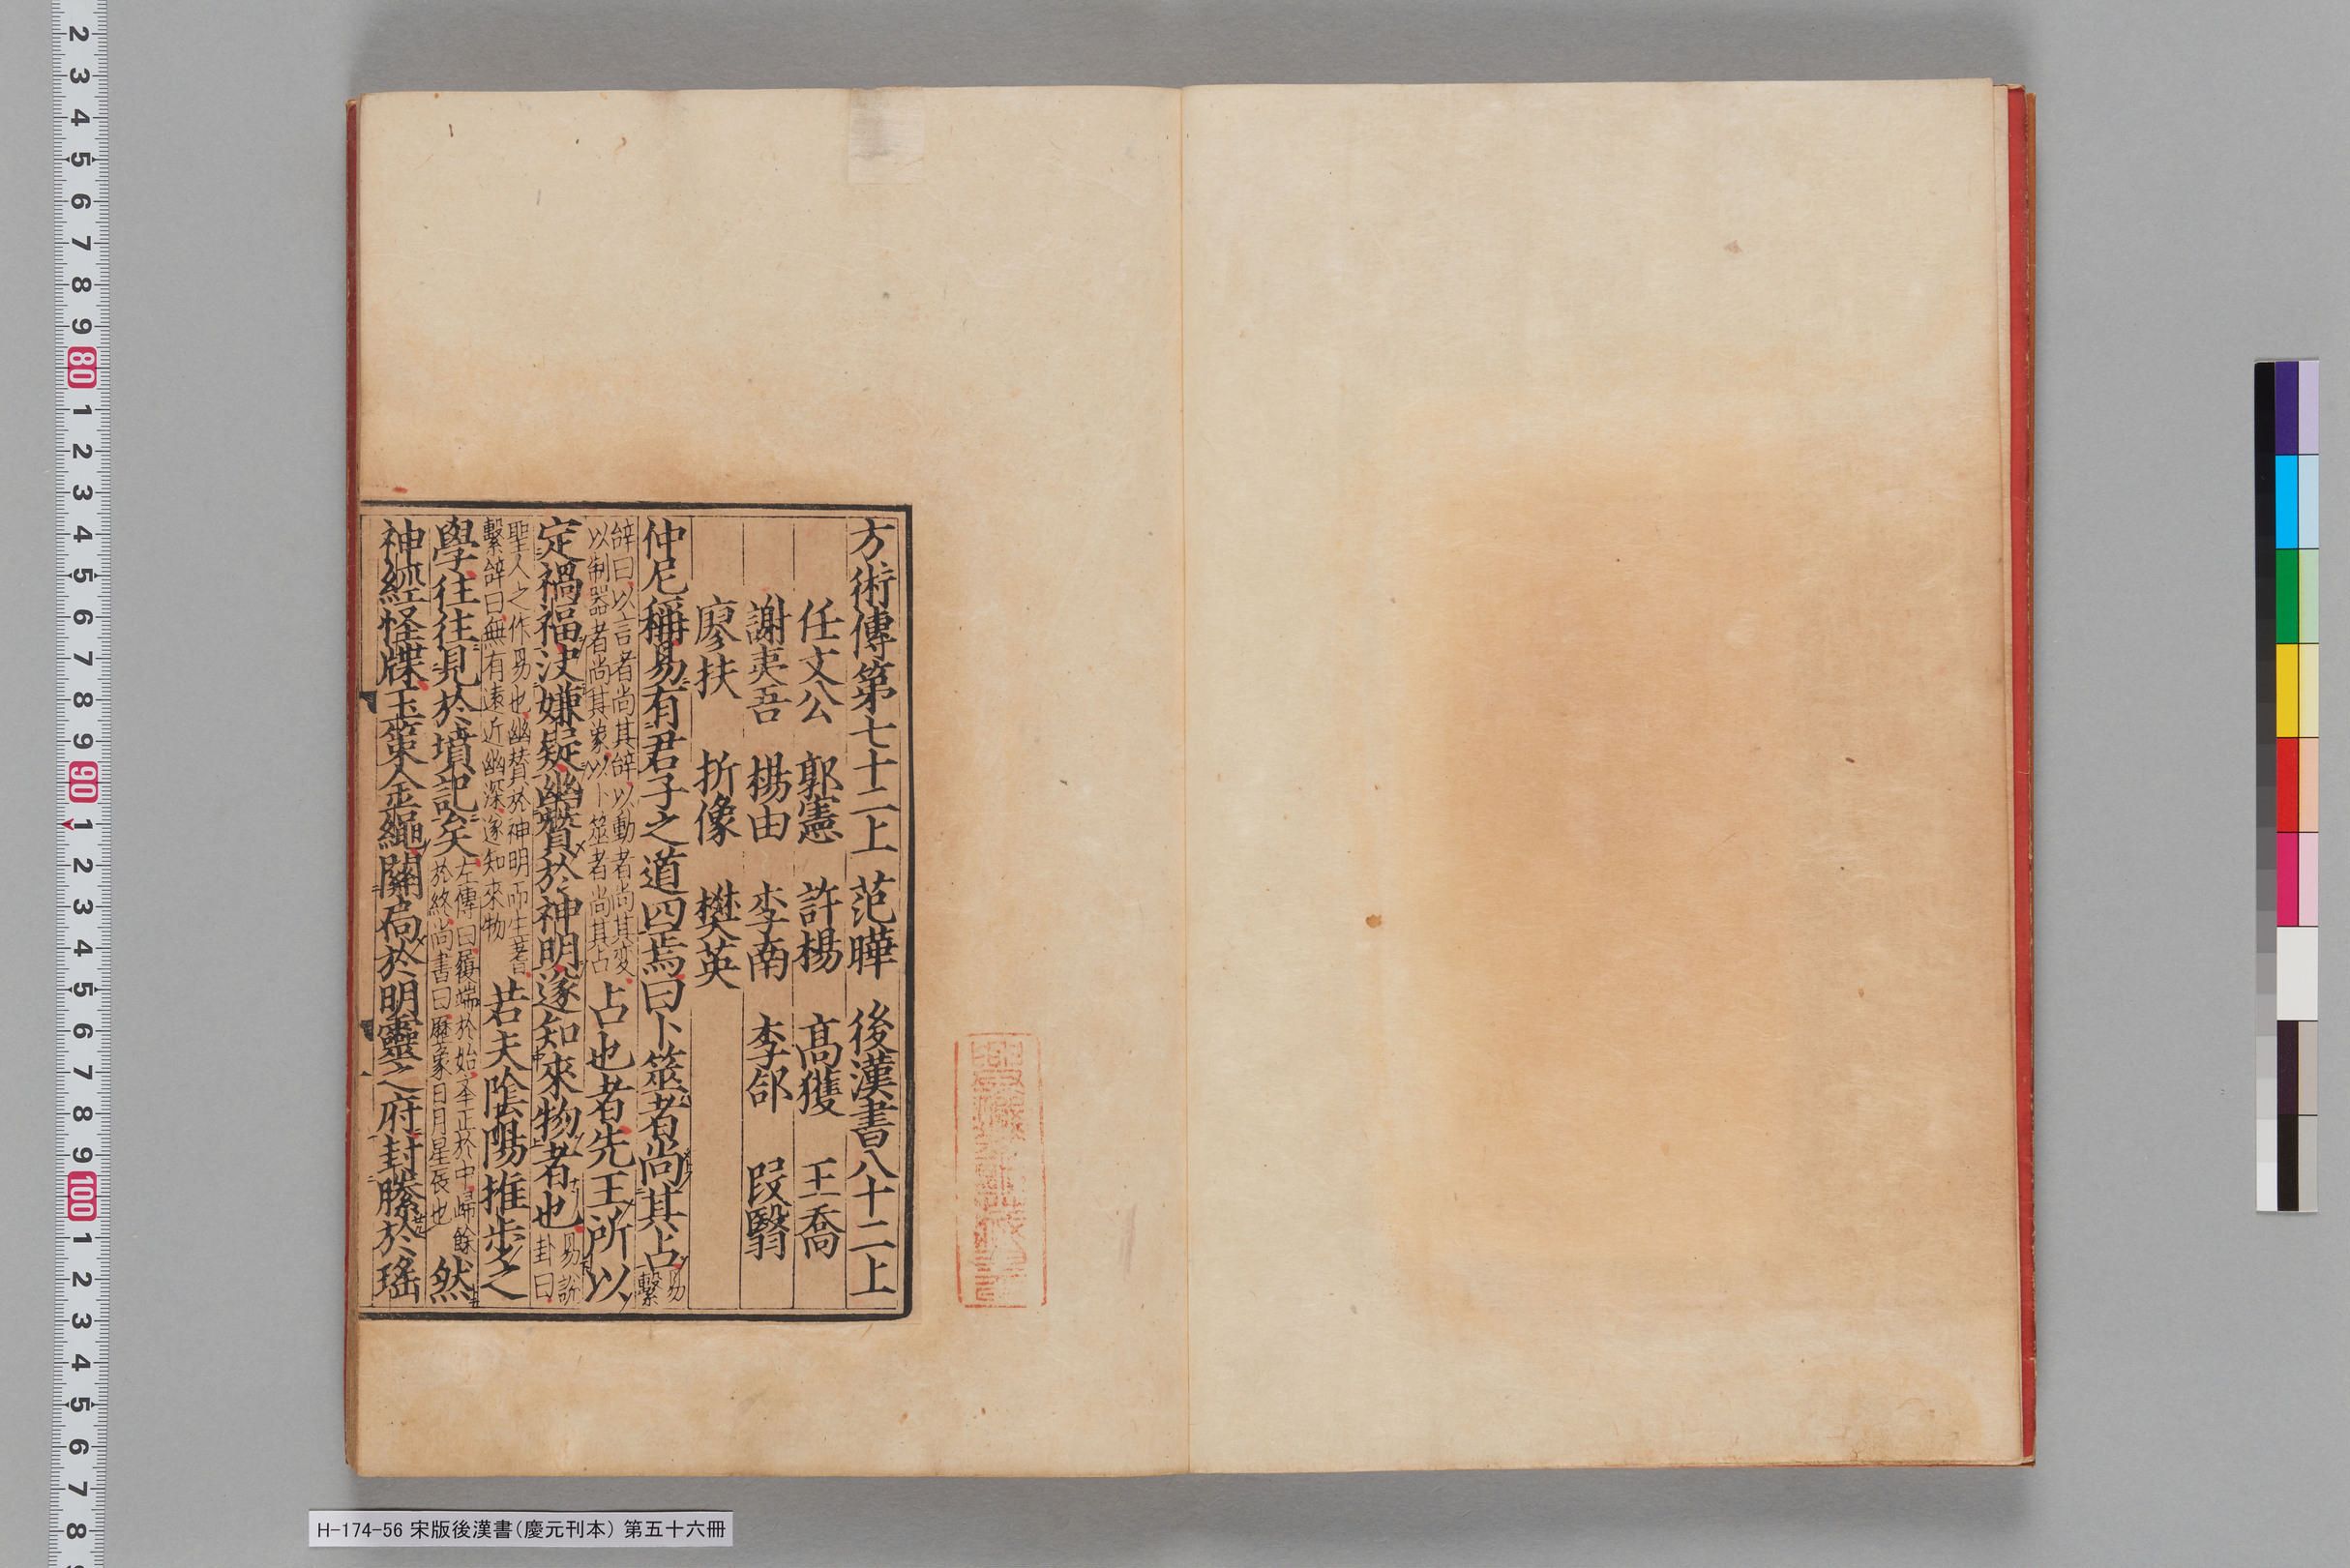 方術傳第七十二上 范曄 後漢書八十二上
任文公 郭憲 許楊 高獲 王喬
謝夷吾 楊由 李南 李郃 段翳
廖扶 折像 樊英
仲尼稱易有君子之道四焉曰卜筮者尚其占易繫
辭曰以言者尚其辭以動者尚其変以制器者尚其象以卜筮者尚其占占也者先王所以
定禍福決嫌疑幽賛於神明遂知來物者也易說卦曰
聖人之作易也幽賛於神明而生蓍繫辭曰無有遠近幽深遂知來物若夫陰陽推步之
學往往見於墳記矣左傳曰履端於始舉正於中歸餘於終尚書曰歷象日月星辰也然
神經怪牒玉策金繩關扃於明靈之府封縢於瑤
H-174-56 宋版後漢書(慶元刊本) 第五十六冊
2 3 4 5 6 7 8 9 80 1 2 3 4 5 6 7 8 9 90 1 2 3 4 5 6 7 8 9 100 1 2 3 4 5 6 7 8